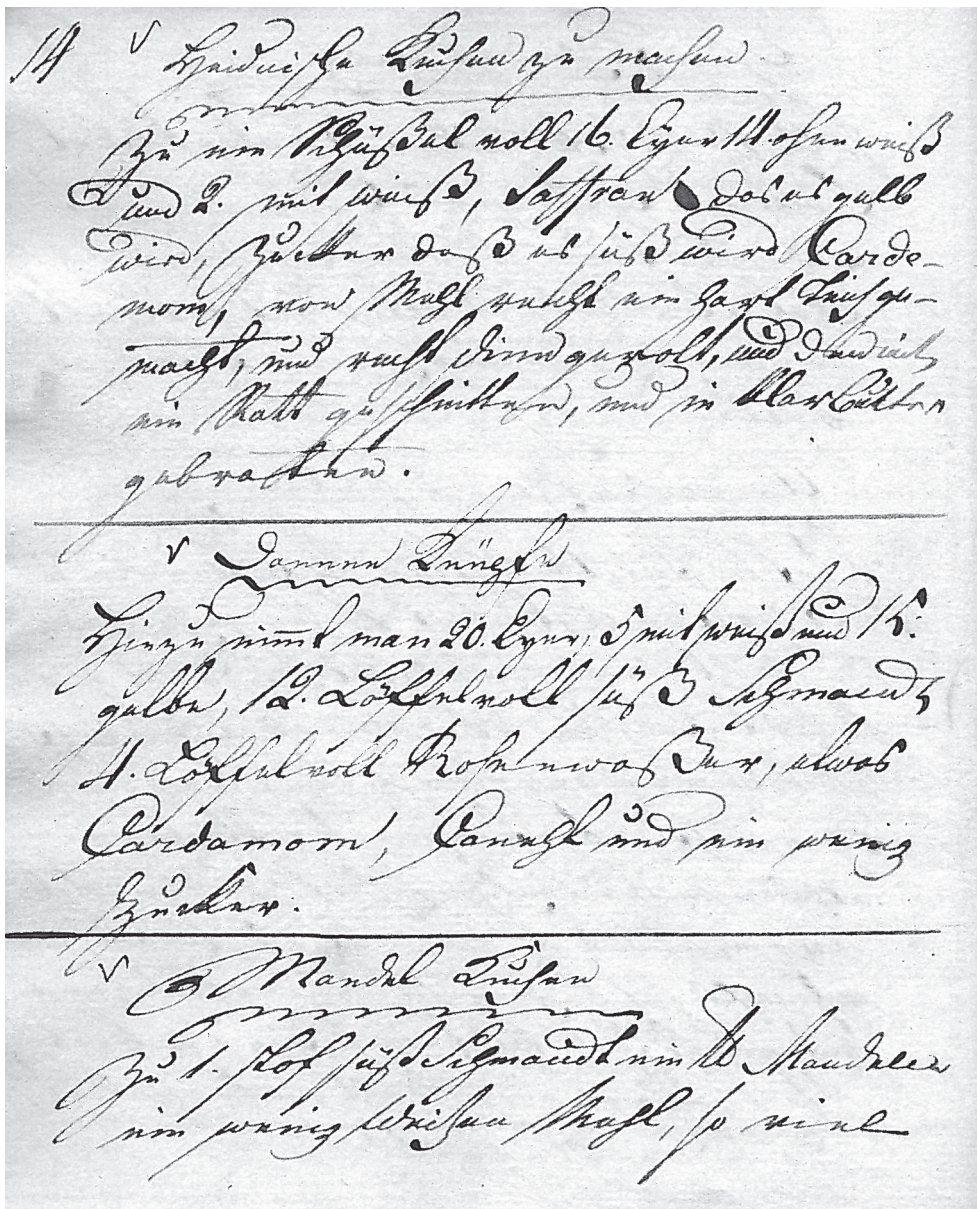 14 Heidnische Kuchen zu machen.
Zu ein Schüßel voll 16. Eyer 14. ohne weiß
und 2. mit weiß, Saffran das es gelb
wird, Zucker daß es süß wird Carde-
mom, von Mehl recht ein hart Teich ge-
macht, und recht dinn gerolt, und
ein Ratt geschnitten, und in klar Butter
gebratten.
Donnen Knöpfe
Hiezu nimt man 20. Eyer, 5 mit weiß und 15.
gelbe, 12. Löffel voll süß Schmandt,
4. Löffel voll Rosenwaßer, etwas
Cardamom, Canehl und ein wenig
Zucker.
Mandel Kuchen
Zu 1. stof süß Schmandt ein ℔ Mandeln
ein wenig Weitzen Mehl, so viel